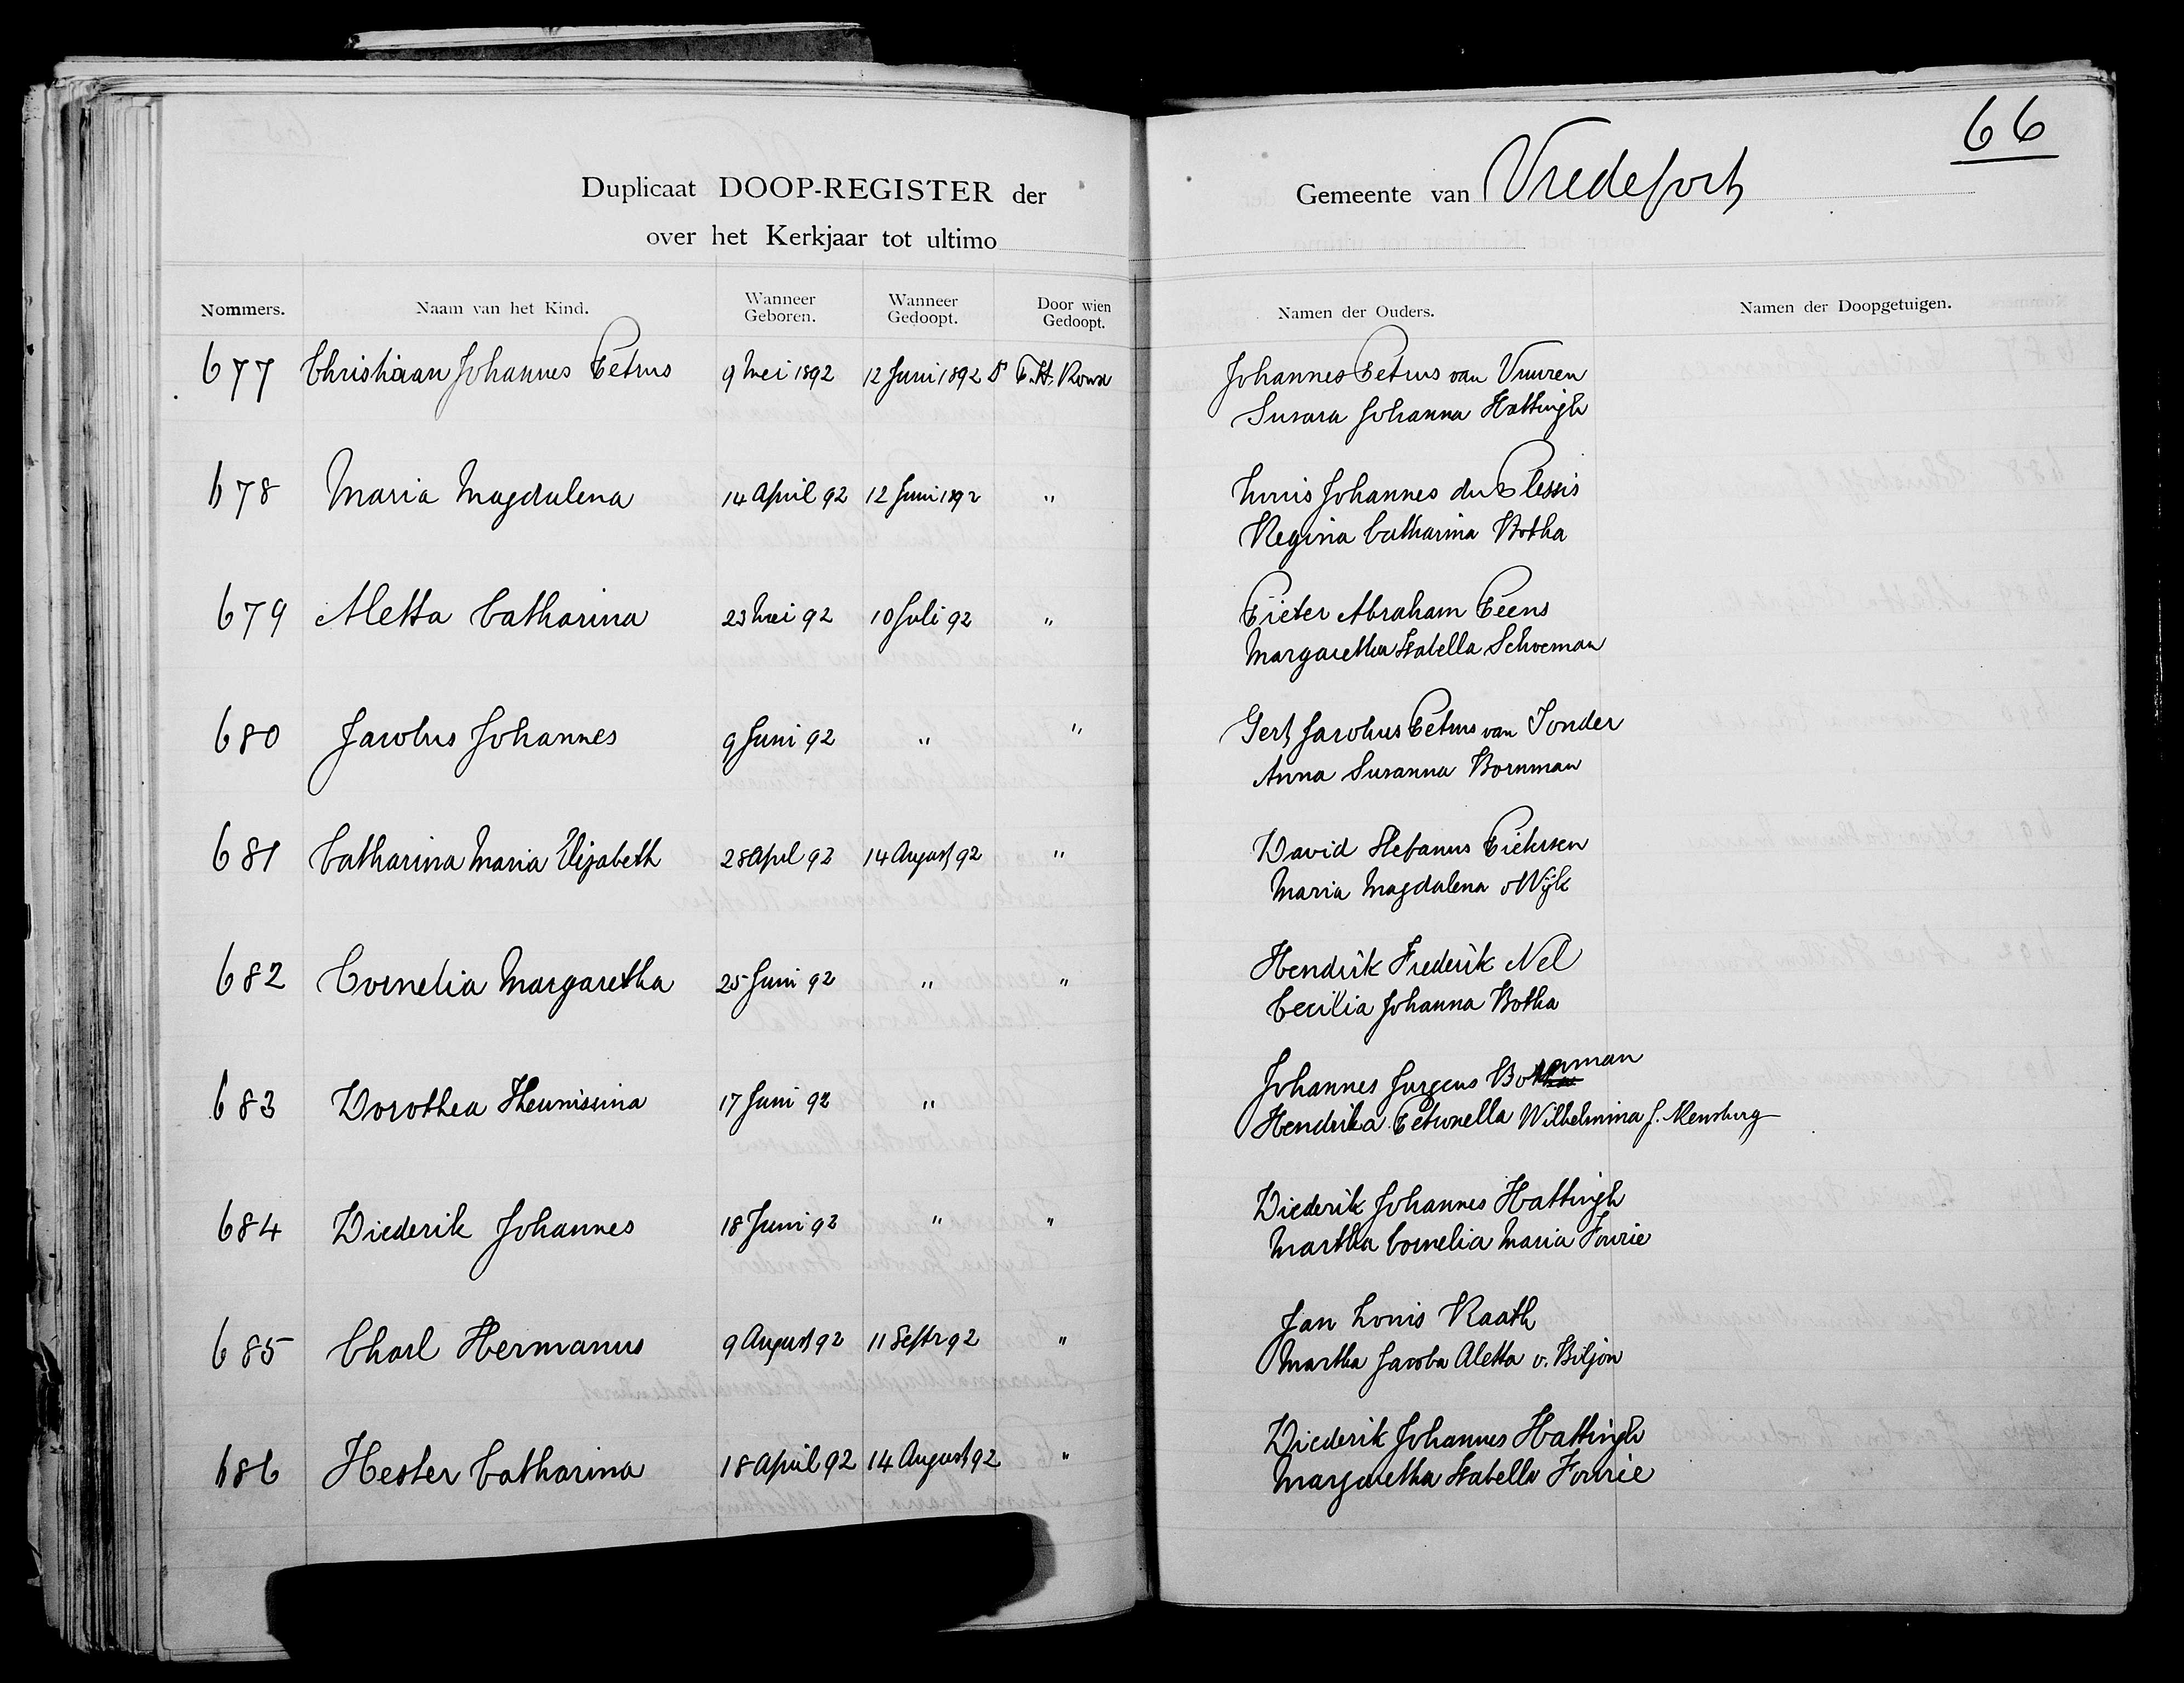 66
Duplicaat DOOP-REGISTER der Gemeente van Vredefort
over het Kerkjaar tot ultimo
Nommers. Naam van het Kind. Wanneer Geboren. Wanneer Gedoopt. Door wien Gedoopt. Namen der Ouders. Namen der Doopgetuigen.
677 Christiaan Johannes Petrus 9 Mei 1892 12 Juni 1892 Ds P. H. Roux Johannes Petrus van Vuuren
Susara Johanna Hattingh
678 Maria Magdalena 14 April 92 12 Juni 1892 " Louis Johannes du Plessis
Regina Catharina Botha
679 Aletta Catharina 23 Mei 92 10 Juli 92 " Pieter Abraham Peens
Margaretha Isabella Schoeman
680 Jacobus Johannes 9 Juni 92 " " Gert Jacobus Petrus van Tonder
Anna Susanna Bornman
681 Catharina Maria Elizabeth 28 Apl 92 14 August 92 " David Stefanus Pietersen
Maria Magdalena v Wijk
682 Cornelia Margaretha 25 Juni 92 " " Hendrik Frederik Nel
Cecilia Johanna Botha
683 Dorothea Theunissina 17 Juni 92 " Johannes Jurgens Bornman
Hendrika Petronella Wilhelmina J. Mensburg
684 Diederik Johannes 18 Juni 92 " " Diederik Johannes Hattingh
Martha Cornelia Maria Fourie
685 Charl Hermanus 9 August 92 11 Septr 92 " Jan Louis Raath
Martha Jacoba Aletta v. Biljon
686 Hester Catharina 18 April 92 14 August 92 " Diederik Johannes Hattingh
Margaretha Isabella Fourie